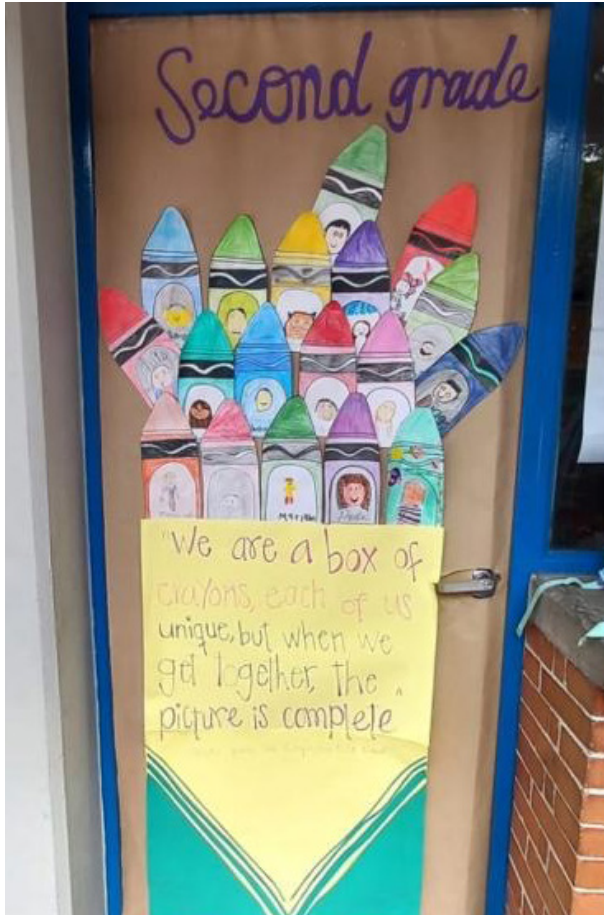 Second grade
"We are a box of
crayons, each of us
unique, but when we
get together, the
picture is complete"